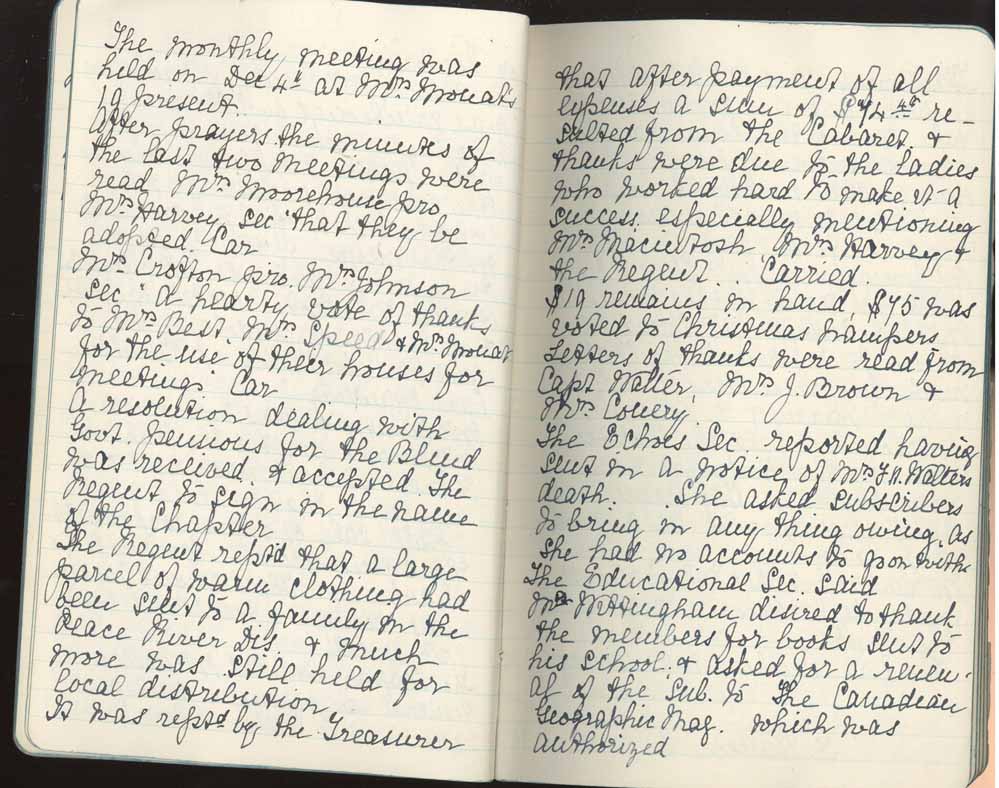 The monthly meeting was
held on Dec 4th at Mrs Mouat's
19 present.
After prayers the minutes of
the last two meetings were
read Mrs Moorehouse pro
Mrs Harvey sec "that they be
adopted. Car
Mrs Crofton pro. Mrs Johnson
sec "a hearty vote of thanks
to Mrs Best, Mrs Speed & Mrs Mouat
for the use of their houses for
meetings" Car
A resolution dealing with
Govt. pensions for the Blind
was received & accepted. The
Regent to sign in the name
of the Chapter
The Regent reptd that a large
parcel of warm clothing had
been sent to a family in the
Peace River Dis. & much
more was still held for
local distribution.
It was reptd by the Treasurer
that after payment of all
expenses a sum of $74 re-
sulted from the Cabaret, &
thanks were due to the ladies
who worked hard to make it a
success, especially mentioning
Mrs Macintosh, Mrs Harvey &
the Regent. Carried.
$19 remains in hand, $45 was
voted to Christmas hampers
Letters of thanks were read from
Capt Walter, Mrs J. Brown &
Mrs
The Echoes Sec. reported having
sent in a notice of Mrs Walters
death. She asked subscribers
to bring in any thing owing, as
she had no accounts to go on with
The Educational Sec. said
Mr Nottingham desired to thank
the members for books sent to
his school, & asked for a renew-
al of the Sub. to The Canadian
Geographic Mag. which was
authorized